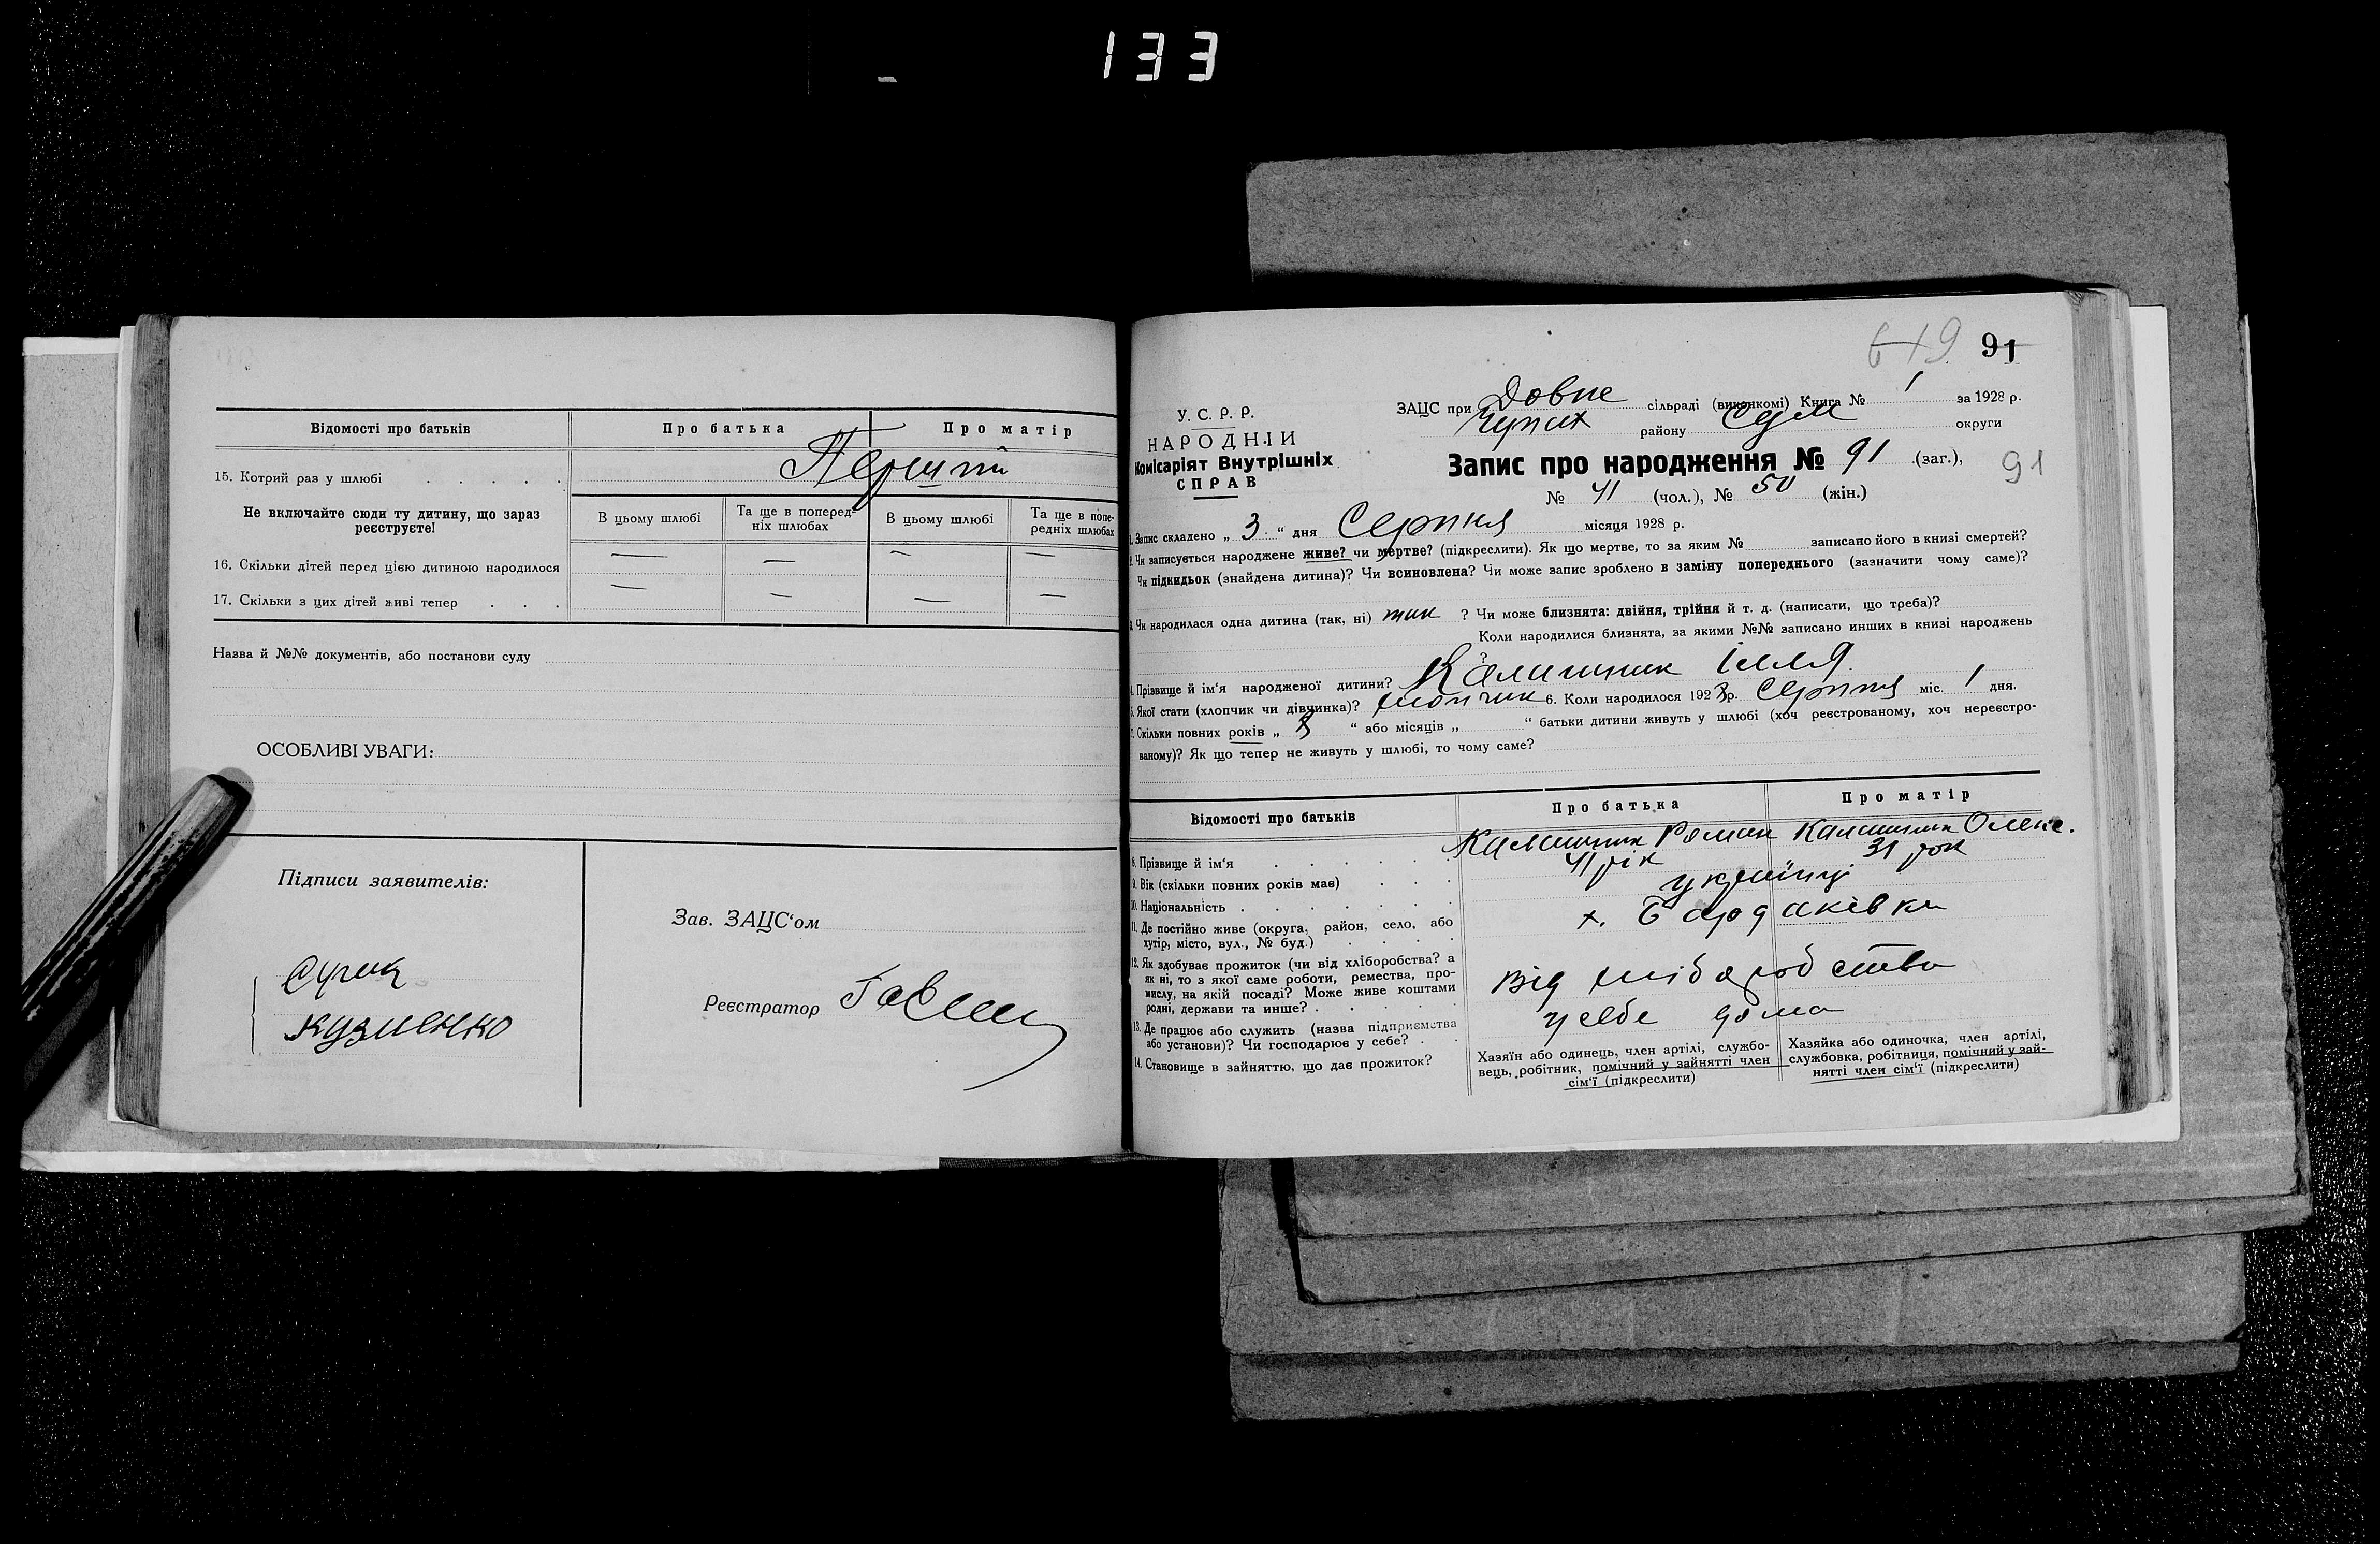 133
Відомості про батьків
Про батька
Про матір
15. Котрий раз у шлюбі . . . . .
Перший
Не включайте сюди ту дитину, що зараз
реєструєте!
В цьому шлюбі
Та ще в поперед-
ніх шлюбах
В цьому шлюбі
Та ще в попе-
редніх шлюбах
16. Скільки дітей перед цією дитиною народилося — — — —
17. Скільки з цих дітей живі тепер . . . — — — —
Назва й №№ документів, або постанови суду
ОСОБЛИВІ УВАГИ:
Підписи заявителів:
Зав. ЗАЦС'ом
Реєстратор
Кузменко
619 91
У. С. Р. Р.
НАРОДНІЙ
Комісаріят Внутрішніх
СПРАВ
ЗАЦС при Довне сільраді (виконкомі) Книга № 1 за 1928 р.
Чупах району Сум округи
Запис про народження № 91 (заг.),
91
№ 41 (чол.), № 50 (жін.)
1. Запис складено „ 3 “ дня Серпня місяця 1928 р.
2. Чи записується народжене живе? чи мертве? (підкреслити). Як що мертве, то за яким № записано його в книзі смертей?
Чи підкидьок (знайдена дитина)? Чи всиновлена? Чи може запис зроблено в заміну попереднього (зазначити чому саме)?
3. Чи народилася одна дитина (так, ні) так ? Чи може близнята: двійня, трійня й т. д. (написати, що треба)?
Коли народилися близнята, за якими №№ записано инших в книзі народжень
?
4. Прізвище й ім'я народженої дитини? Калашник Ілля
5. Якої статі (хлопчик чи дівчинка)? хлопчик 6. Коли народилося 1928 р. Серпня міс. 1 дня.
7. Скільки повних років „ “ або місяців „ “ батьки дитини живуть у шлюбі (хоч реєстрованому, хоч нереєстро-
ваному)? Як що тепер не живуть у шлюбі, то чому саме?
Відомості про батьків
Про батька
Про матір
8. Прізвище й ім'я . . . . . Калашник Роман Калашник Олекс.
9. Вік (скільки повних років має) . . . 41 рік 31 рок
10. Національність . . . . . . . українці
11. Де постійно живе (округа, район, село, або
хутір, місто, вул., № буд.) . . . .
х. Бардаківка
12. Як здобуває прожиток (чи від хліборобства? а
як ні, то з якої саме роботи, ремества, про-
мислу, на якій посаді? Може живе коштами
родні, держави та инше? . . . . .
від хліборобства
13. Де працює або служить (назва підприємства
або установи)? Чи господарює у себе? . .
у себе дома
14. Становище в зайняттю, що дає прожиток?
Хазяїн або одинець, член артілі, службо-
вець, робітник, помічний у зайнятті член
сім'ї (підкреслити)
Хазяйка або одиночка, член артілі,
службовка, робітниця, помічний у зай-
нятті член сім'ї (підкреслити)